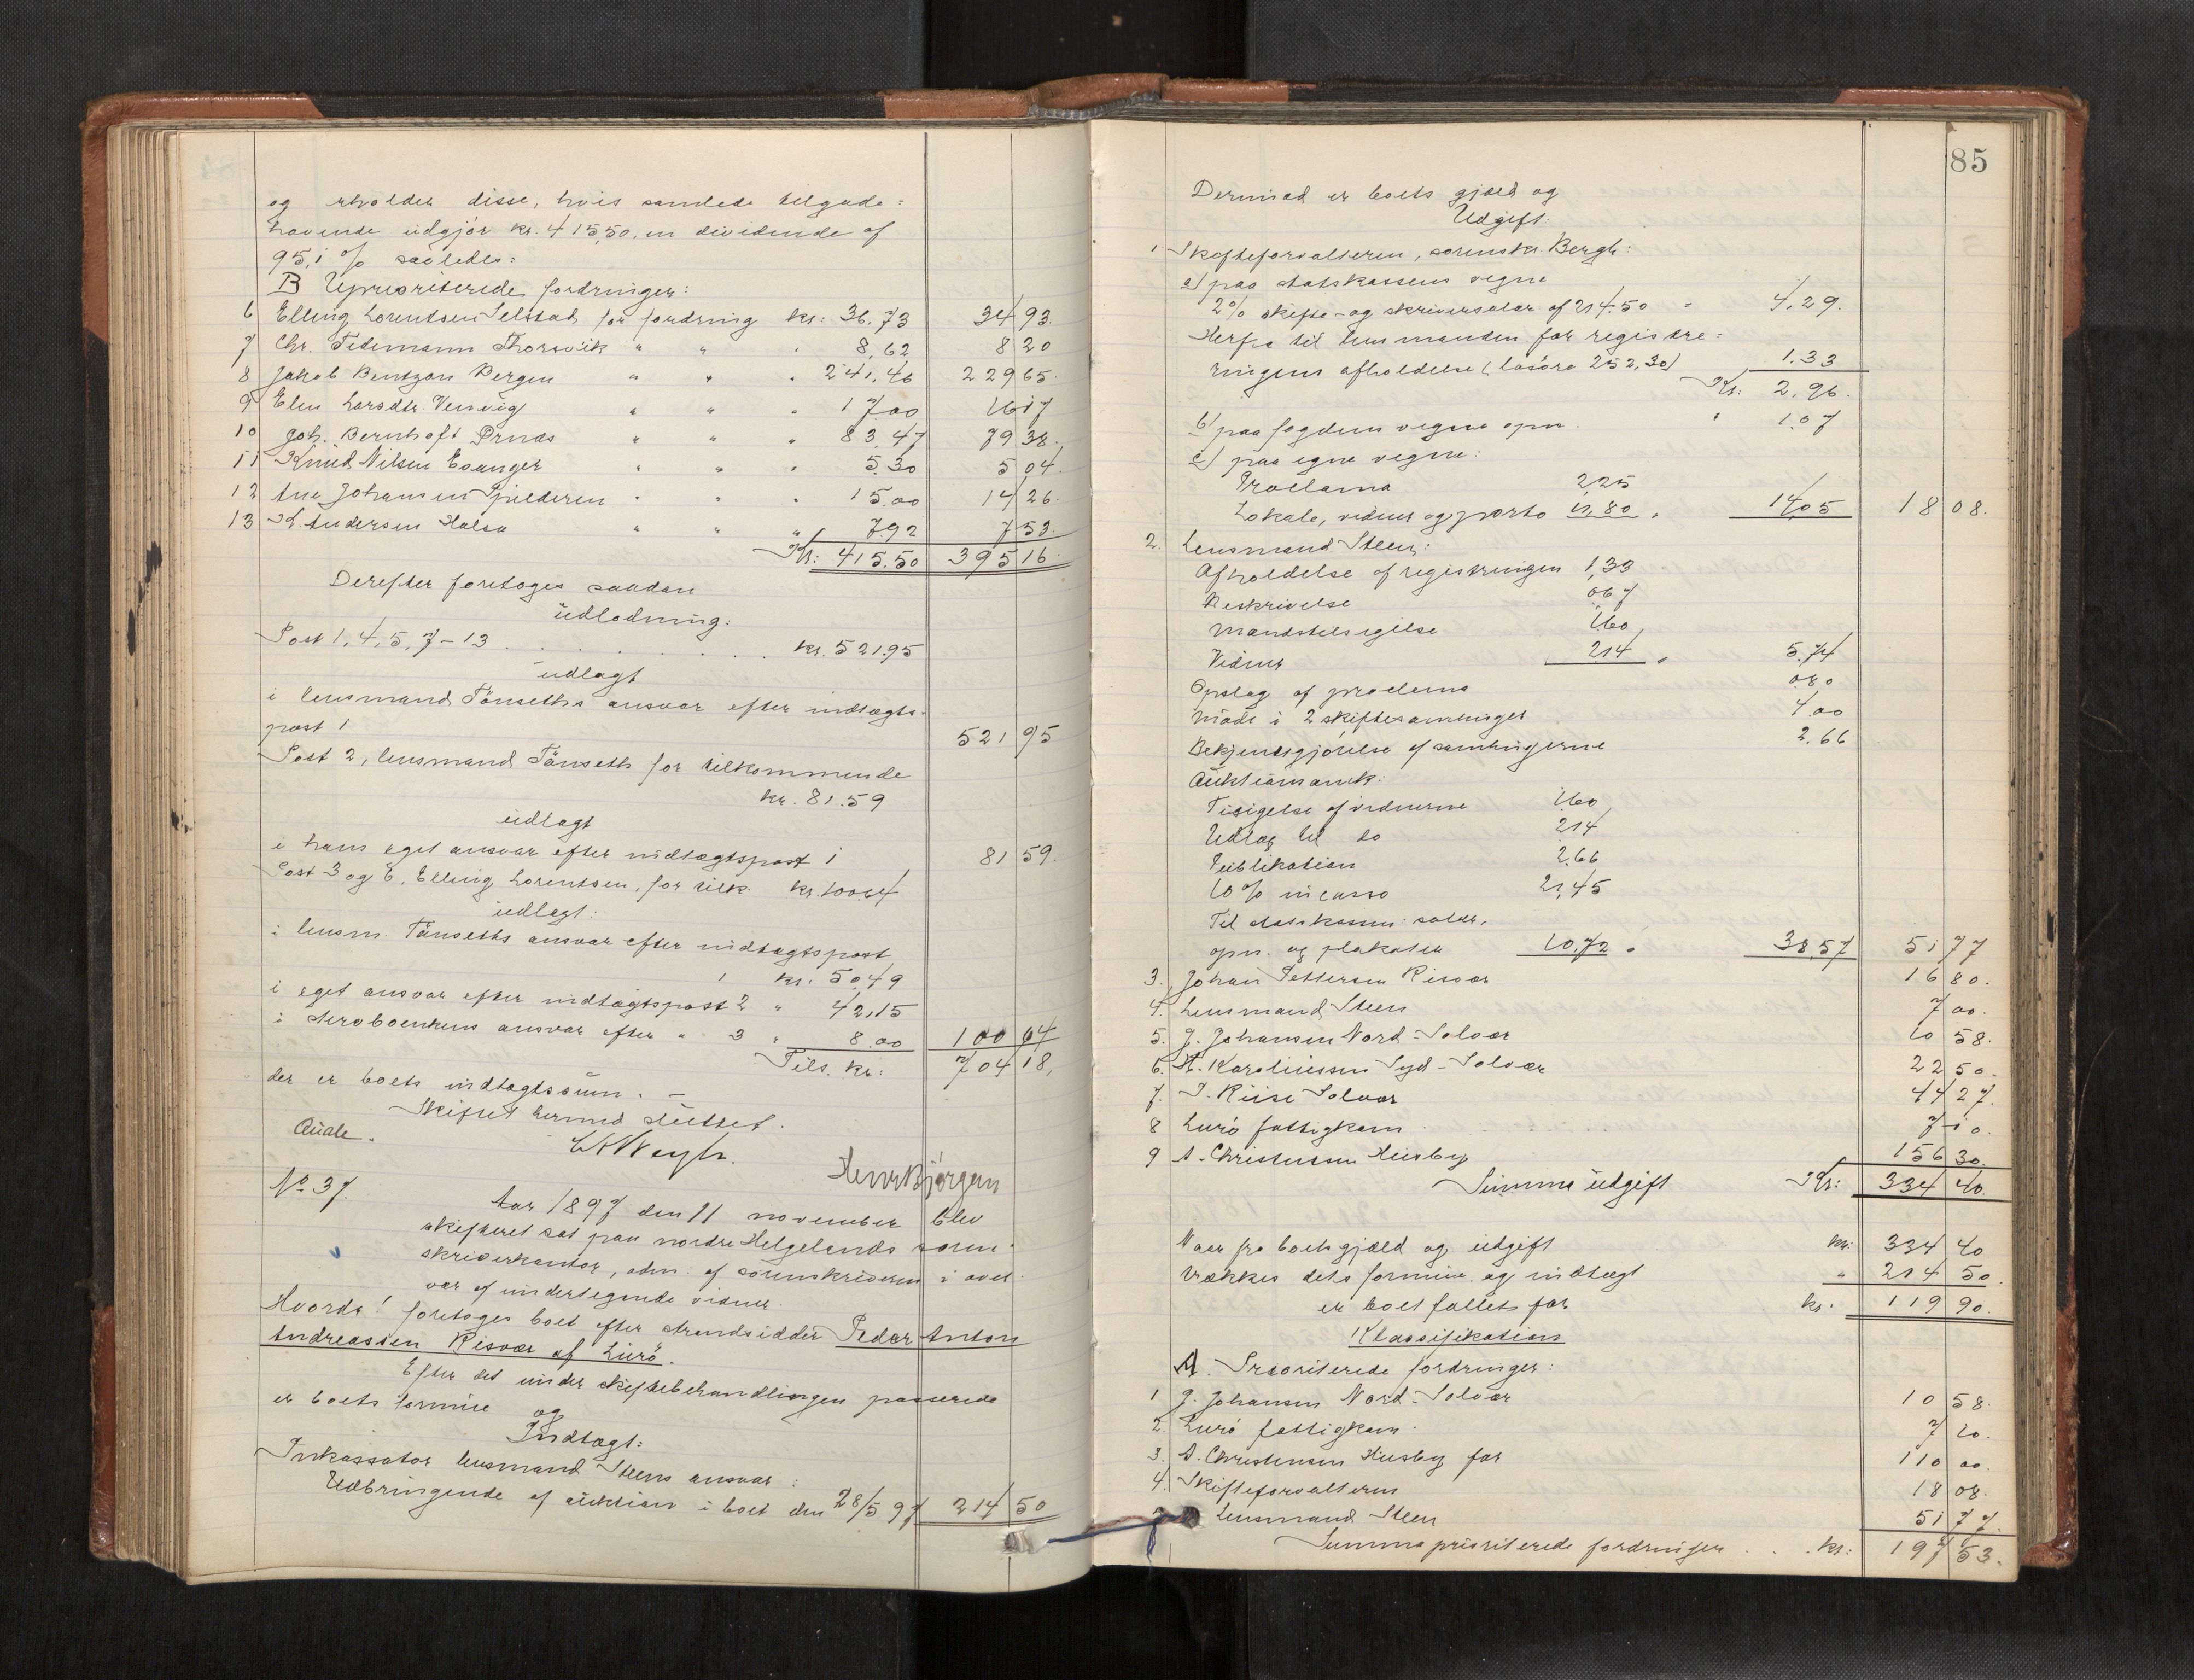 og erholder disse, hvis samlede tilgode=
havende udgjør kr. 415,50, en dividende af
95,1 % saaledes:
B Uprioriterede fordringer:
6 Elling Lorentsen Selstad for fordring kr: 36,73 34 93.
7 Chr. Tidemann Thorsvik " " " 8,62 8 20
8 Jakob Bentzon Bergen " " " 241,46 229 65.
9 Elen Larsdtr. Venvig " " " 17,00 16 17
10 Joh. Bernhoft Prnæs " " " 83,47 79 38.
11 Knud Nilsen Esanger " " " 5,30 5 04.
12 Ane Johansen Spilderen " " " 15,00 14 26.
13 K. Andersen Halsa " " " 7,92 7 53.
Kr: 415,50 395 16.
Derefter foretoges saadan
udlodning:
Post 1, 4, 5, 7-13 . . . . . kr. 521.95
udlagt
i lensmand Tönseths ansvar efter indtægts-
post 1 521 95
Post 2, lensmand Tönseth for tilkommende
kr. 81.59
udlagt
i hans eget ansvar efter indtægtspost 1 81 59.
Post 3 og 6, Elling Lorentsen, for tilk. kr. 100.64
udlagt:
i lensm. Tönseths ansvar efter indtægtspost
1 kr: 50,49
i eget ansvar efter indtægtspost 2 " 42,15
i ansvar efter " 3 " 8.00 100 64
Tils. kr: 704 18,
der er boets indtægtssum. -
Skiftet hermed sluttet.
Aüale.
No 37.
Aar 1897 den 11 november blev
skifteret sat paa nordre Helgelands soren-
skriverkontor, adm. af sorenskriveren i over-
vær af undertegnede vidner.
Hvorda! foretoges boet efter strandsidder Peder Anton
Andreassen Risvær af Lurö.
Efter det under skiftebehandlingen passerede
er boets formue
og
Indtægt:
Inkassator lensmand Steens ansvar:
Udbringende af auktion i boet den 28/5 97 214 50

85
Dermod er boets gjæld og
Udgift:
1 Skifteforvalteren, sorenskr. Bergh:
a) paa statskassens vegne
2% skifte- og skriversalær af 214.50 " 4,29.
Herfra til lensmanden for registre=
ringens afholdelse (løsøre 252,30) 1.33
Kr: 2,96.
b) paa fogdens vegne opn. " 1.07
c) paa egne vegne:
Proclama 2,25
Lokale, vidner og porto 11,80 " 14,05 18 08.
2. Lensmand Steen:
Afholdelse af registreringen 1,33
Beskrivelse 0,67
Mandstilsigelse 1,60
Vidner 2,14 " 5.74
Opslag af proclama 0.80
Møde i 2 skiftesamlinger 4.00
Bekjendtgjørelse af samlingerne 2.66
Auktionsomk:
Tilsigelse af vidnerne 1,60
Udlæg til do 2,14
Publikation 2.66
10% incasso 21,45
Til statskassen: salær,
opn. og plakater 10,72 " 38,57 51 77
3. Johan Pettersen Risvær 16 80.
4. Lensmand Steen 7 00.
5. J. Johansen Nord-Solvær 10 58.
6. H. Karoliussen Syd-Solvær 22 50.
7. I. Riise Solvær 44 27.
8 Lurö fattigkasse 7 10.
9 A. Christensen Husby 156 30.
Summa udgift Kr: 334 40.
Naar fra boets gjæld og udgift kr: 334 40
trækkes dets formue og indtægt " 214 50.
er boet fallit for kr. 119 90.
Klassifikation
A. Prioriterede fordringer:
1 J. Johansen Nord-Solvær 10 58.
2. Lurö fattigkasse 7 10.
3. A. Christensen Husby for 110 00.
4. Skifteforvalteren 18 08.
Lensmand Steen 51 77.
Summa prioriterede fordringer . . . kr: 197 53.